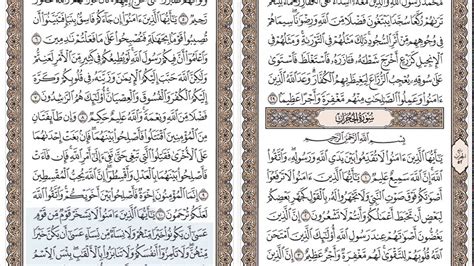 مُّحَمَّدٌ رَّسُولُ ٱللَّهِ وَٱلَّذِينَ مَعَهُۥٓ أَشِدَّآءُ عَلَى ٱلْكُفَّارِ رُحَمَآءُ بَيْنَهُمْ
تَرَىٰهُمْ رُكَّعًا سُجَّدًا يَبْتَغُونَ فَضْلًا مِّنَ ٱللَّهِ وَرِضْوَٰنًا سِيمَاهُمْ
فِى وُجُوهِهِم مِّنْ أَثَرِ ٱلسُّجُودِ ذَٰلِكَ مَثَلُهُمْ فِى ٱلتَّوْرَىٰةِ وَمَثَلُهُمْ فِى
ٱلْإِنجِيلِ كَزَرْعٍ أَخْرَجَ شَطْـَٔهُۥ فَـَٔازَرَهُۥ فَٱسْتَغْلَظَ فَٱسْتَوَىٰ
عَلَىٰ سُوقِهِۦ يُعْجِبُ ٱلزُّرَّاعَ لِيَغِيظَ بِهِمُ ٱلْكُفَّارَ وَعَدَ ٱللَّهُ ٱلَّذِينَ
ءَامَنُوا۟ وَعَمِلُوا۟ ٱلصَّٰلِحَٰتِ مِنْهُم مَّغْفِرَةً وَأَجْرًا عَظِيمًۢا ٢٩
سُورَةُ الحُجُرَاتِ
بِسْمِ ٱللَّهِ ٱلرَّحْمَٰنِ ٱلرَّحِيمِ
يَٰٓأَيُّهَا ٱلَّذِينَ ءَامَنُوا۟ لَا تُقَدِّمُوا۟ بَيْنَ يَدَىِ ٱللَّهِ وَرَسُولِهِۦ وَٱتَّقُوا۟
ٱللَّهَ إِنَّ ٱللَّهَ سَمِيعٌ عَلِيمٌ ١ يَٰٓأَيُّهَا ٱلَّذِينَ ءَامَنُوا۟ لَا تَرْفَعُوٓا۟
أَصْوَٰتَكُمْ فَوْقَ صَوْتِ ٱلنَّبِىِّ وَلَا تَجْهَرُوا۟ لَهُۥ بِٱلْقَوْلِ كَجَهْرِ بَعْضِكُمْ
لِبَعْضٍ أَن تَحْبَطَ أَعْمَٰلُكُمْ وَأَنتُمْ لَا تَشْعُرُونَ ٢ إِنَّ ٱلَّذِينَ يَغُضُّونَ
أَصْوَٰتَهُمْ عِندَ رَسُولِ ٱللَّهِ أُو۟لَٰٓئِكَ ٱلَّذِينَ ٱمْتَحَنَ ٱللَّهُ قُلُوبَهُمْ
لِلتَّقْوَىٰ لَهُم مَّغْفِرَةٌ وَأَجْرٌ عَظِيمٌ ٣ إِنَّ ٱلَّذِينَ
وَلَوْ أَنَّهُمْ صَبَرُوا۟ حَتَّىٰ تَخْرُجَ إِلَيْهِمْ لَكَانَ خَيْرًا لَّهُمْ وَٱللَّهُ غَفُورٌ
رَّحِيمٌ ٥ يَٰٓأَيُّهَا ٱلَّذِينَ ءَامَنُوٓا۟ إِن جَآءَكُمْ فَاسِقٌۢ بِنَبَإٍ فَتَبَيَّنُوٓا۟ أَن
تُصِيبُوا۟ قَوْمًۢا بِجَهَٰلَةٍ فَتُصْبِحُوا۟ عَلَىٰ مَا فَعَلْتُمْ نَٰدِمِينَ ٦
وَٱعْلَمُوٓا۟ أَنَّ فِيكُمْ رَسُولَ ٱللَّهِ لَوْ يُطِيعُكُمْ فِى كَثِيرٍ مِّنَ ٱلْأَمْرِ لَعَنِتُّمْ
وَلَٰكِنَّ ٱللَّهَ حَبَّبَ إِلَيْكُمُ ٱلْإِيمَٰنَ وَزَيَّنَهُۥ فِى قُلُوبِكُمْ وَكَرَّهَ
إِلَيْكُمُ ٱلْكُفْرَ وَٱلْفُسُوقَ وَٱلْعِصْيَانَ أُو۟لَٰٓئِكَ هُمُ ٱلرَّٰشِدُونَ ٧
فَضْلًا مِّنَ ٱللَّهِ وَنِعْمَةً وَٱللَّهُ عَلِيمٌ حَكِيمٌ ٨ وَإِن طَآئِفَتَانِ مِنَ
ٱلْمُؤْمِنِينَ ٱقْتَتَلُوا۟ فَأَصْلِحُوا۟ بَيْنَهُمَا فَإِنۢ بَغَتْ إِحْدَىٰهُمَا
عَلَى ٱلْأُخْرَىٰ فَقَٰتِلُوا۟ ٱلَّتِى تَبْغِى حَتَّىٰ تَفِىٓءَ إِلَىٰٓ أَمْرِ ٱللَّهِ فَإِن فَآءَتْ
فَأَصْلِحُوا۟ بَيْنَهُمَا بِٱلْعَدْلِ وَأَقْسِطُوٓا۟ إِنَّ ٱللَّهَ يُحِبُّ ٱلْمُقْسِطِينَ ٩
إِنَّمَا ٱلْمُؤْمِنُونَ إِخْوَةٌ فَأَصْلِحُوا۟ بَيْنَ أَخَوَيْكُمْ وَٱتَّقُوا۟ ٱللَّهَ
لَعَلَّكُمْ تُرْحَمُونَ ١٠ يَٰٓأَيُّهَا ٱلَّذِينَ ءَامَنُوا۟ لَا يَسْخَرْ قَوْمٌ مِّن قَوْمٍ
عَسَىٰٓ أَن يَكُونُوا۟ خَيْرًا مِّنْهُمْ وَلَا نِسَآءٌ مِّن نِّسَآءٍ عَسَىٰٓ أَن يَكُنَّ خَيْرًا
مِّنْهُنَّ وَلَا تَلْمِزُوٓا۟ أَنفُسَكُمْ وَلَا تَنَابَزُوا۟ بِٱلْأَلْقَٰبِ بِئْسَ ٱلِٱسْمُ